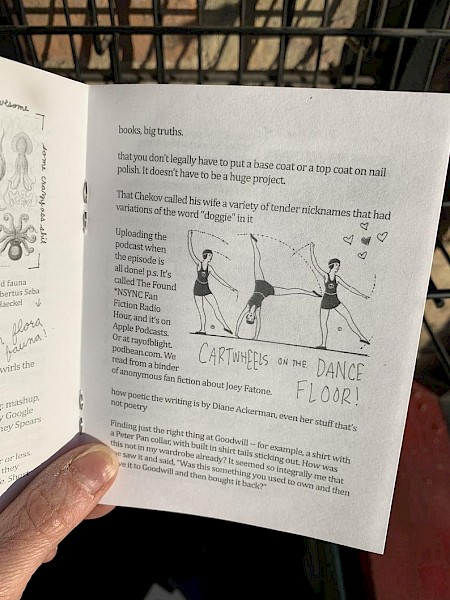 esome
some
d fauna
bertus Seba
aeckel
flora
fauna!
wirls the
mashup,
y Google
ney Spears
or less.
they
books, big truths.
that you don't legally have to put a base coat or a top coat on nail
polish. It doesn't have to be a huge project.
That Chekov called his wife a variety of tender nicknames that had
variations of the word "doggie" in it
Uploading the
podcast when
the episode is
all done! p.s. It's
called The Found
*NSYNC Fan
Fiction Radio
Hour, and it's on
Apple Podcasts.
Or at rayofblight.
podbean.com. We
read from a binder
of anonymous fan fiction about Joey Fatone.
CARTWHEELS ON THE DANCE
FLOOR!
how poetic the writing is by Diane Ackerman, even her stuff that's
not poetry
Finding just the right thing at Goodwill – for example, a shirt with
a Peter Pan collar, with built in shirt tails sticking out. How was
this not in my wardrobe already? It seemed so integrally me that
e saw it and said, "Was this something you used to own and then
ve it to Goodwill and then bought it back?"